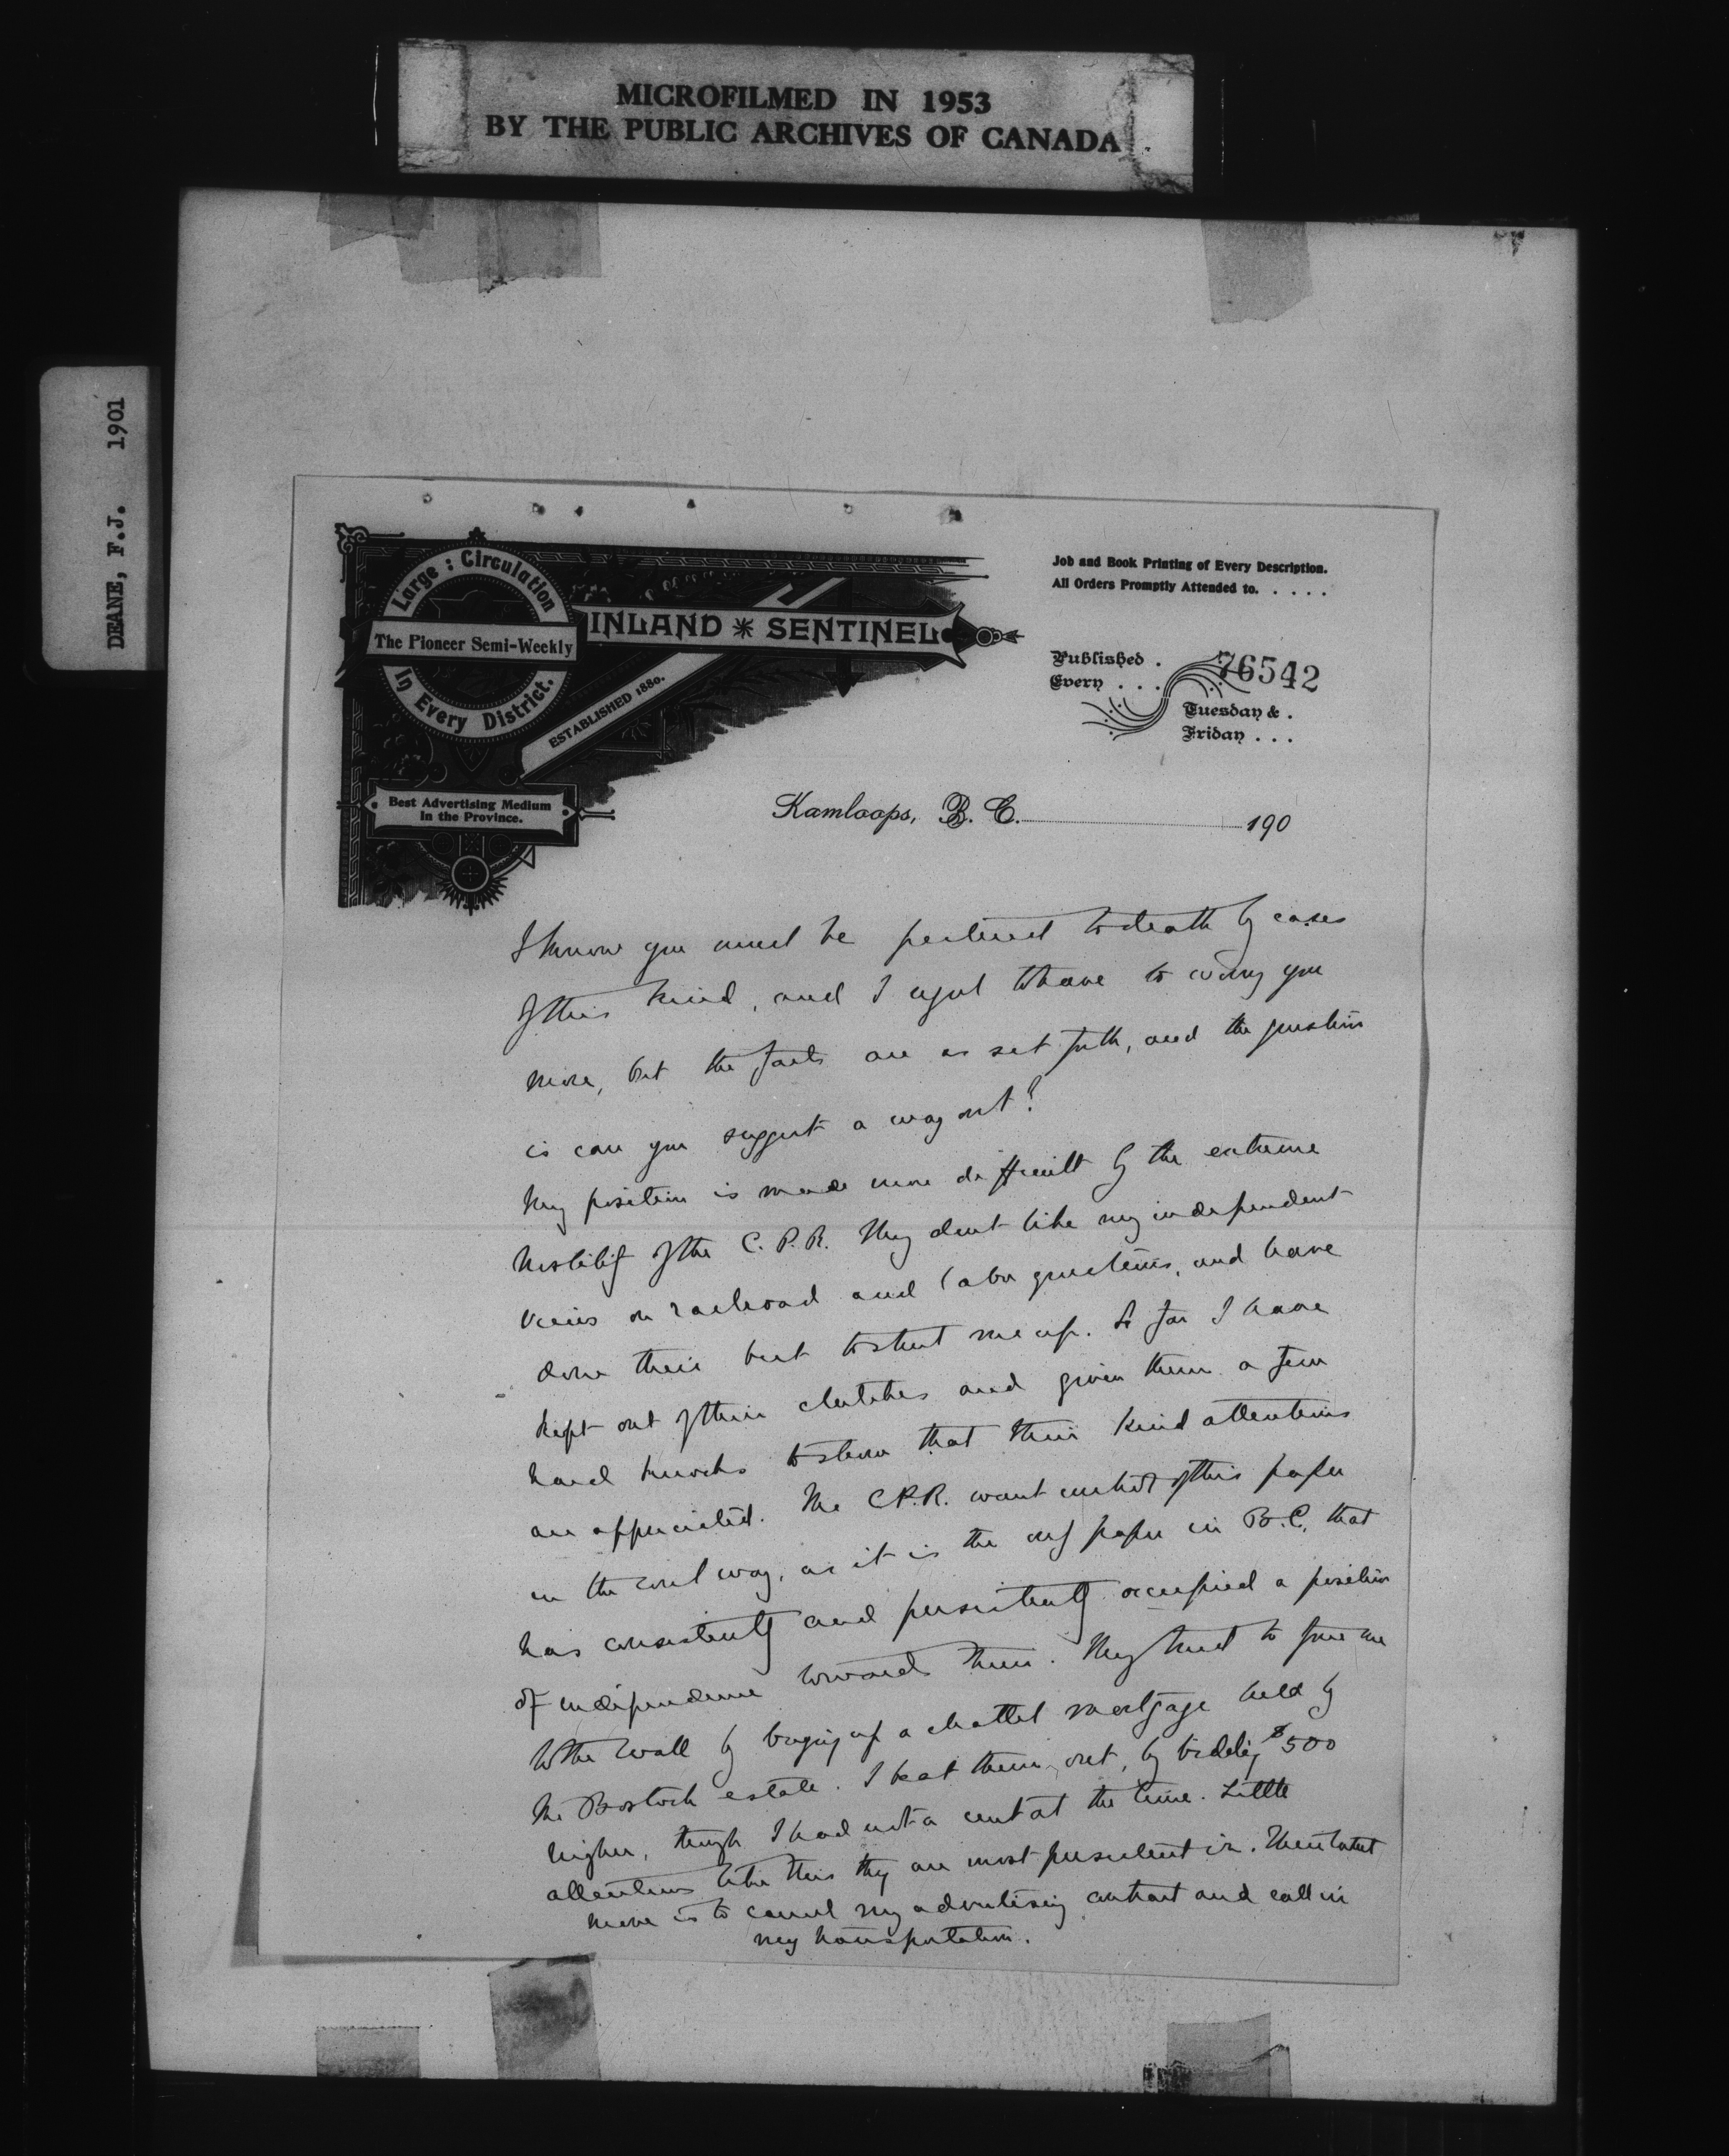 MICROFILMED IN 1953
BY THE PUBLIC ARCHIVES OF CANADA
DEANE, F.J. 1901
Large : Circulation
The Pioneer Semi-Weekly
In Every District.
INLAND SENTINEL
ESTABLISHED 1880.
Best Advertising Medium
In the Province.
Job and Book Printing of Every Description.
All Orders Promptly Attended to. . . . .
Published .
Every . . .
76542
Tuesday & .
Friday . . .
Kamloops, B. C. 190
I know you must be pestered to death by cases
of this kind, and I regret to have to worry you
more, but the facts are as set forth, and the question
is can you suggest a way out?
My position is made more difficult by the extreme
hostility of the C. P. R. They dont like my independent
views on railroad and labor questions, and have
done their best to shut me up. So far I have
kept out of their clutches and given them a few
hard knocks to show that their kind attentions
are appreciated. The C.P.R. want control of this paper
in the worst way, as it is the only paper in B.C. that
has consistently and persistently occupied a position
of independence towards them. They tried to force me
to the wall by buying up a chattel mortgage held by
the Bostock estate. I beat them out, by bidding $500
higher, though I had not a cent at the time. Little
attentions like this they are most persistent in. Their latest
move is to cancel my advertising contract and call in
my transportation.